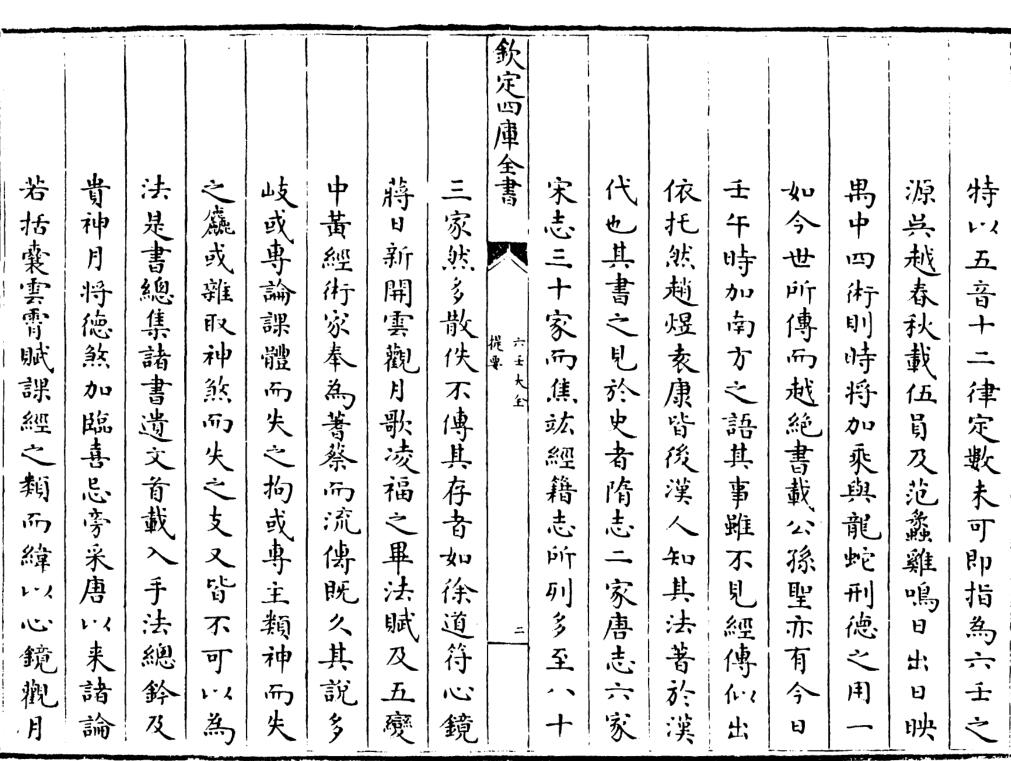 特以五音十二律定數未可即指為六壬之
源吳越春秋載伍員及范蠡雞鳴日出日昳
禺中四術則時將加乘與龍蛇刑德之用一
如今世所傳而越絕書載公孫聖亦有今日
壬午時加南方之語其事雖不見經傳似出
依托然趙煜袁康皆後漢人知其法著於漢
代也其書之見於史者隋志二家唐志六家
宋志三十家而焦竑經籍志所列多至八十
欽定四庫全書
六壬大全
提要
二
三家然多散佚不傳其存者如徐道符心鏡
蔣日新開雲觀月歌凌福之畢法賦及五變
中黃經術家奉為蓍蔡而流傳既久其說多
岐或專論課體而失之拘或專主類神而失
之麤或雜取神煞而失之支又皆不可以為
法是書總集諸書遺文首載入手法總鈐及
貴神月將德煞加臨喜忌旁采唐以来諸論
若括囊雲霄賦課經之類而緯以心鏡觀月